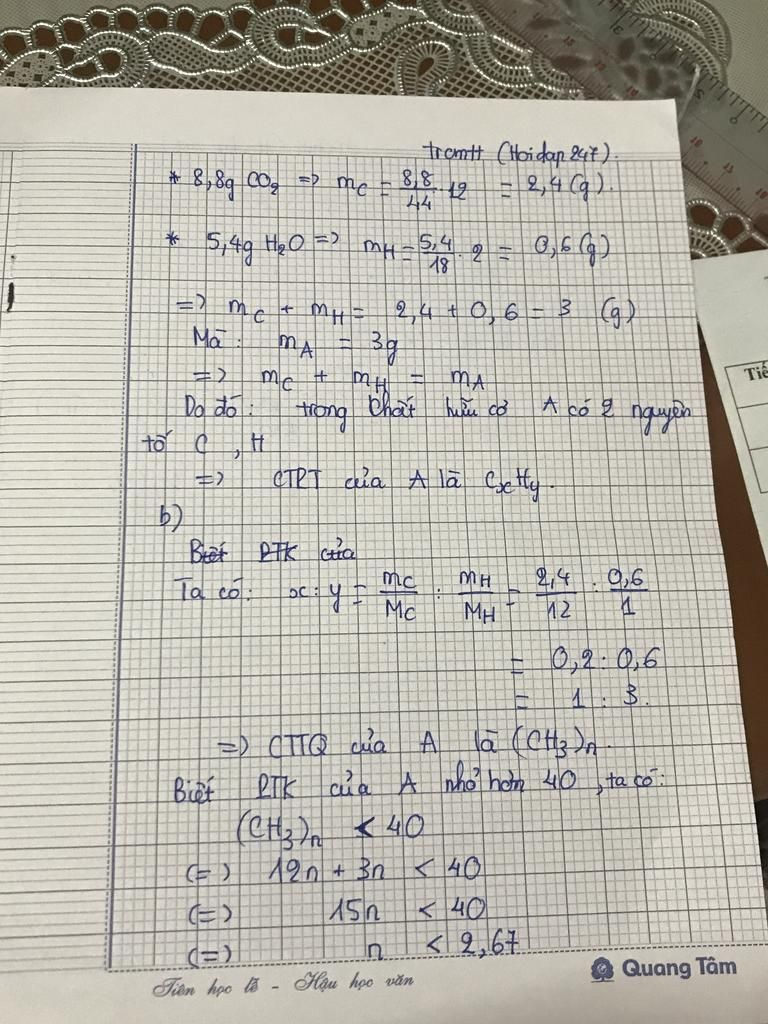 trcmtt (Hoidap247).
* 8,8g CO₂ => mC = 8,8/44 . 12 = 2,4 (g).
* 5,4g H₂O => mH = 5,4/18 . 2 = 0,6 (g)
=> mC + mH = 2,4 + 0,6 = 3 (g)
Mà: mA = 3g
=> mC + mH = mA
Do đó: trong chất hữu cơ A có 2 nguyên
tố C, H
=> CTPT của A là CxHy.
b)
Biết PTK của
Ta có: x : y = mC/MC : mH/MH = 2,4/12 : 0,6/1
= 0,2 : 0,6
= 1 : 3.
=> CTTQ của A là (CH₃)n.
Biết PTK của A nhỏ hơn 40, ta có:
(CH₃)n < 40
(=) 12n + 3n < 40
(=) 15n < 40
(=) n < 2,67
Tiên học lễ - Hậu học văn
Quang Tâm
Tiế